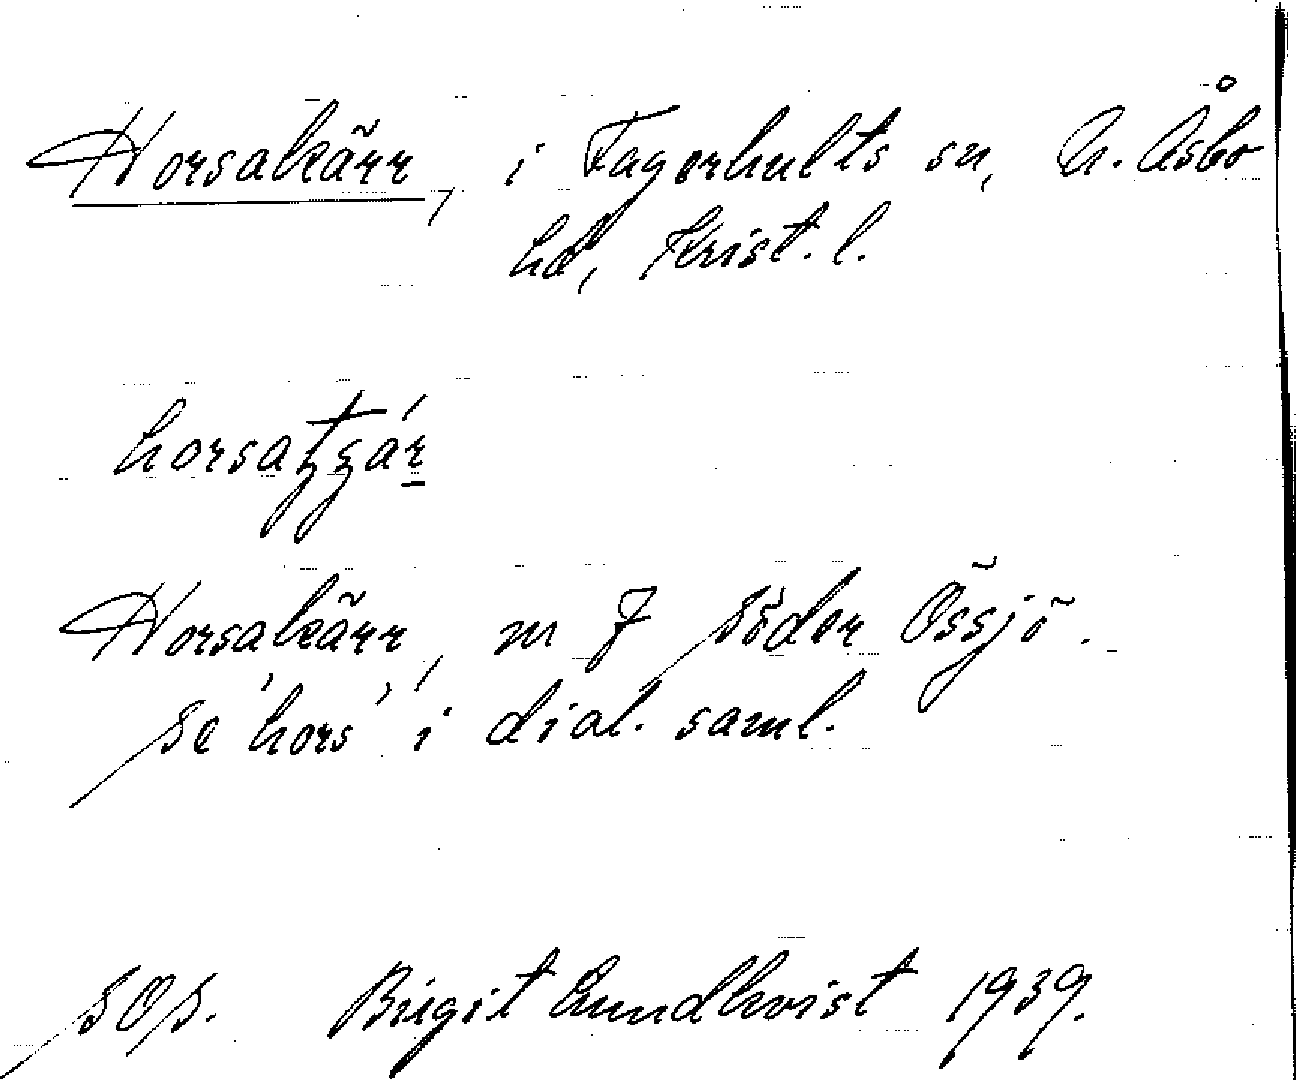 Horsakärr, i Fagerhults sn, N. Åsbo
hd, Krist. l.
Horsakärr, nr 7 Söder Össjö.
se 'hors' i dial. saml.
SOS. Birgit Lundkvist 1939.